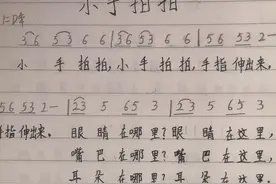 小手拍拍
3 6 5 3 6 6 | 3 6 5 3 6 6 | 5 6 5 3 2 —
小 手 拍 拍, 小 手 拍 拍, 手指 伸出来,
5 6 5 3 2 — | 2 3 5 6 5 3 | 2 3 5 6 5 3
手指 伸出来. 眼 睛 在哪 里? 眼 睛 在这 里,
嘴 巴 在哪 里? 嘴 巴 在这 里,
耳 朵 在哪 里? 耳 朵 在这 里